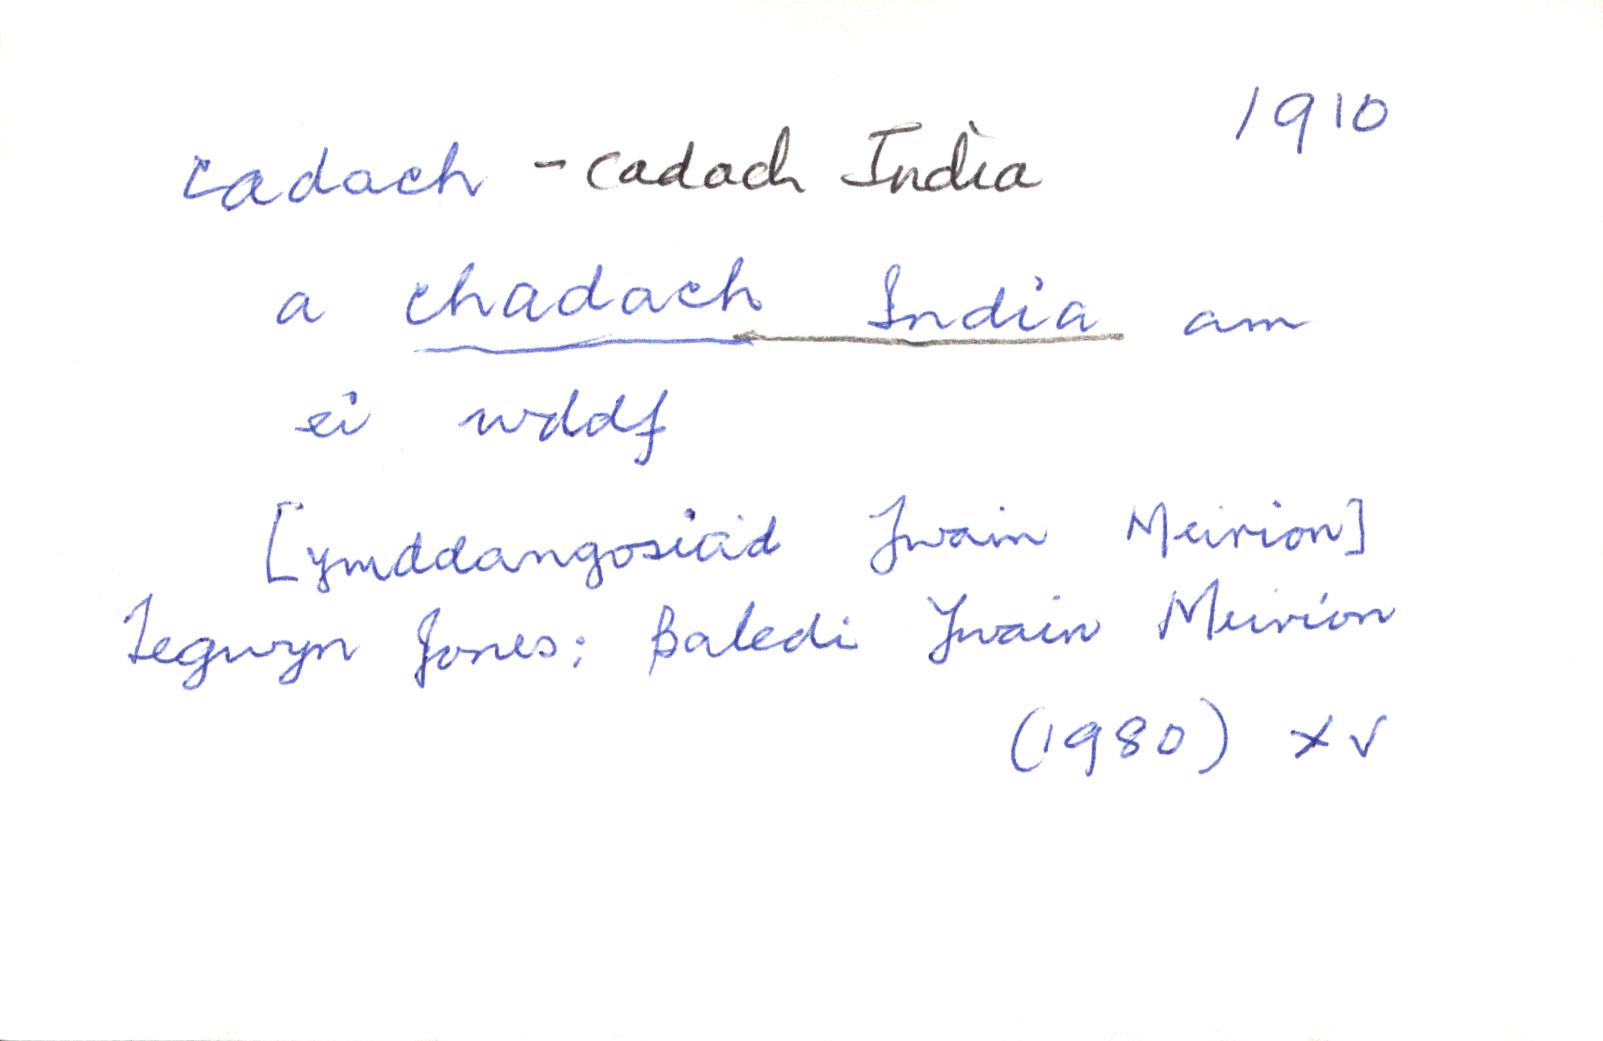 1910
cadach - cadach India
a chadach India am
ei wddf
[ymddangosiad Ywain Meirion]
Tegwyn Jones; Baledi Ywain Meirion
(1980) xv